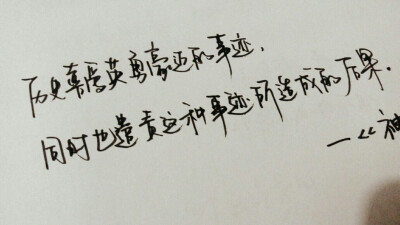 历史喜爱英勇豪迈的事迹，
同时也谴责这种事迹所造成的后果。
—《神